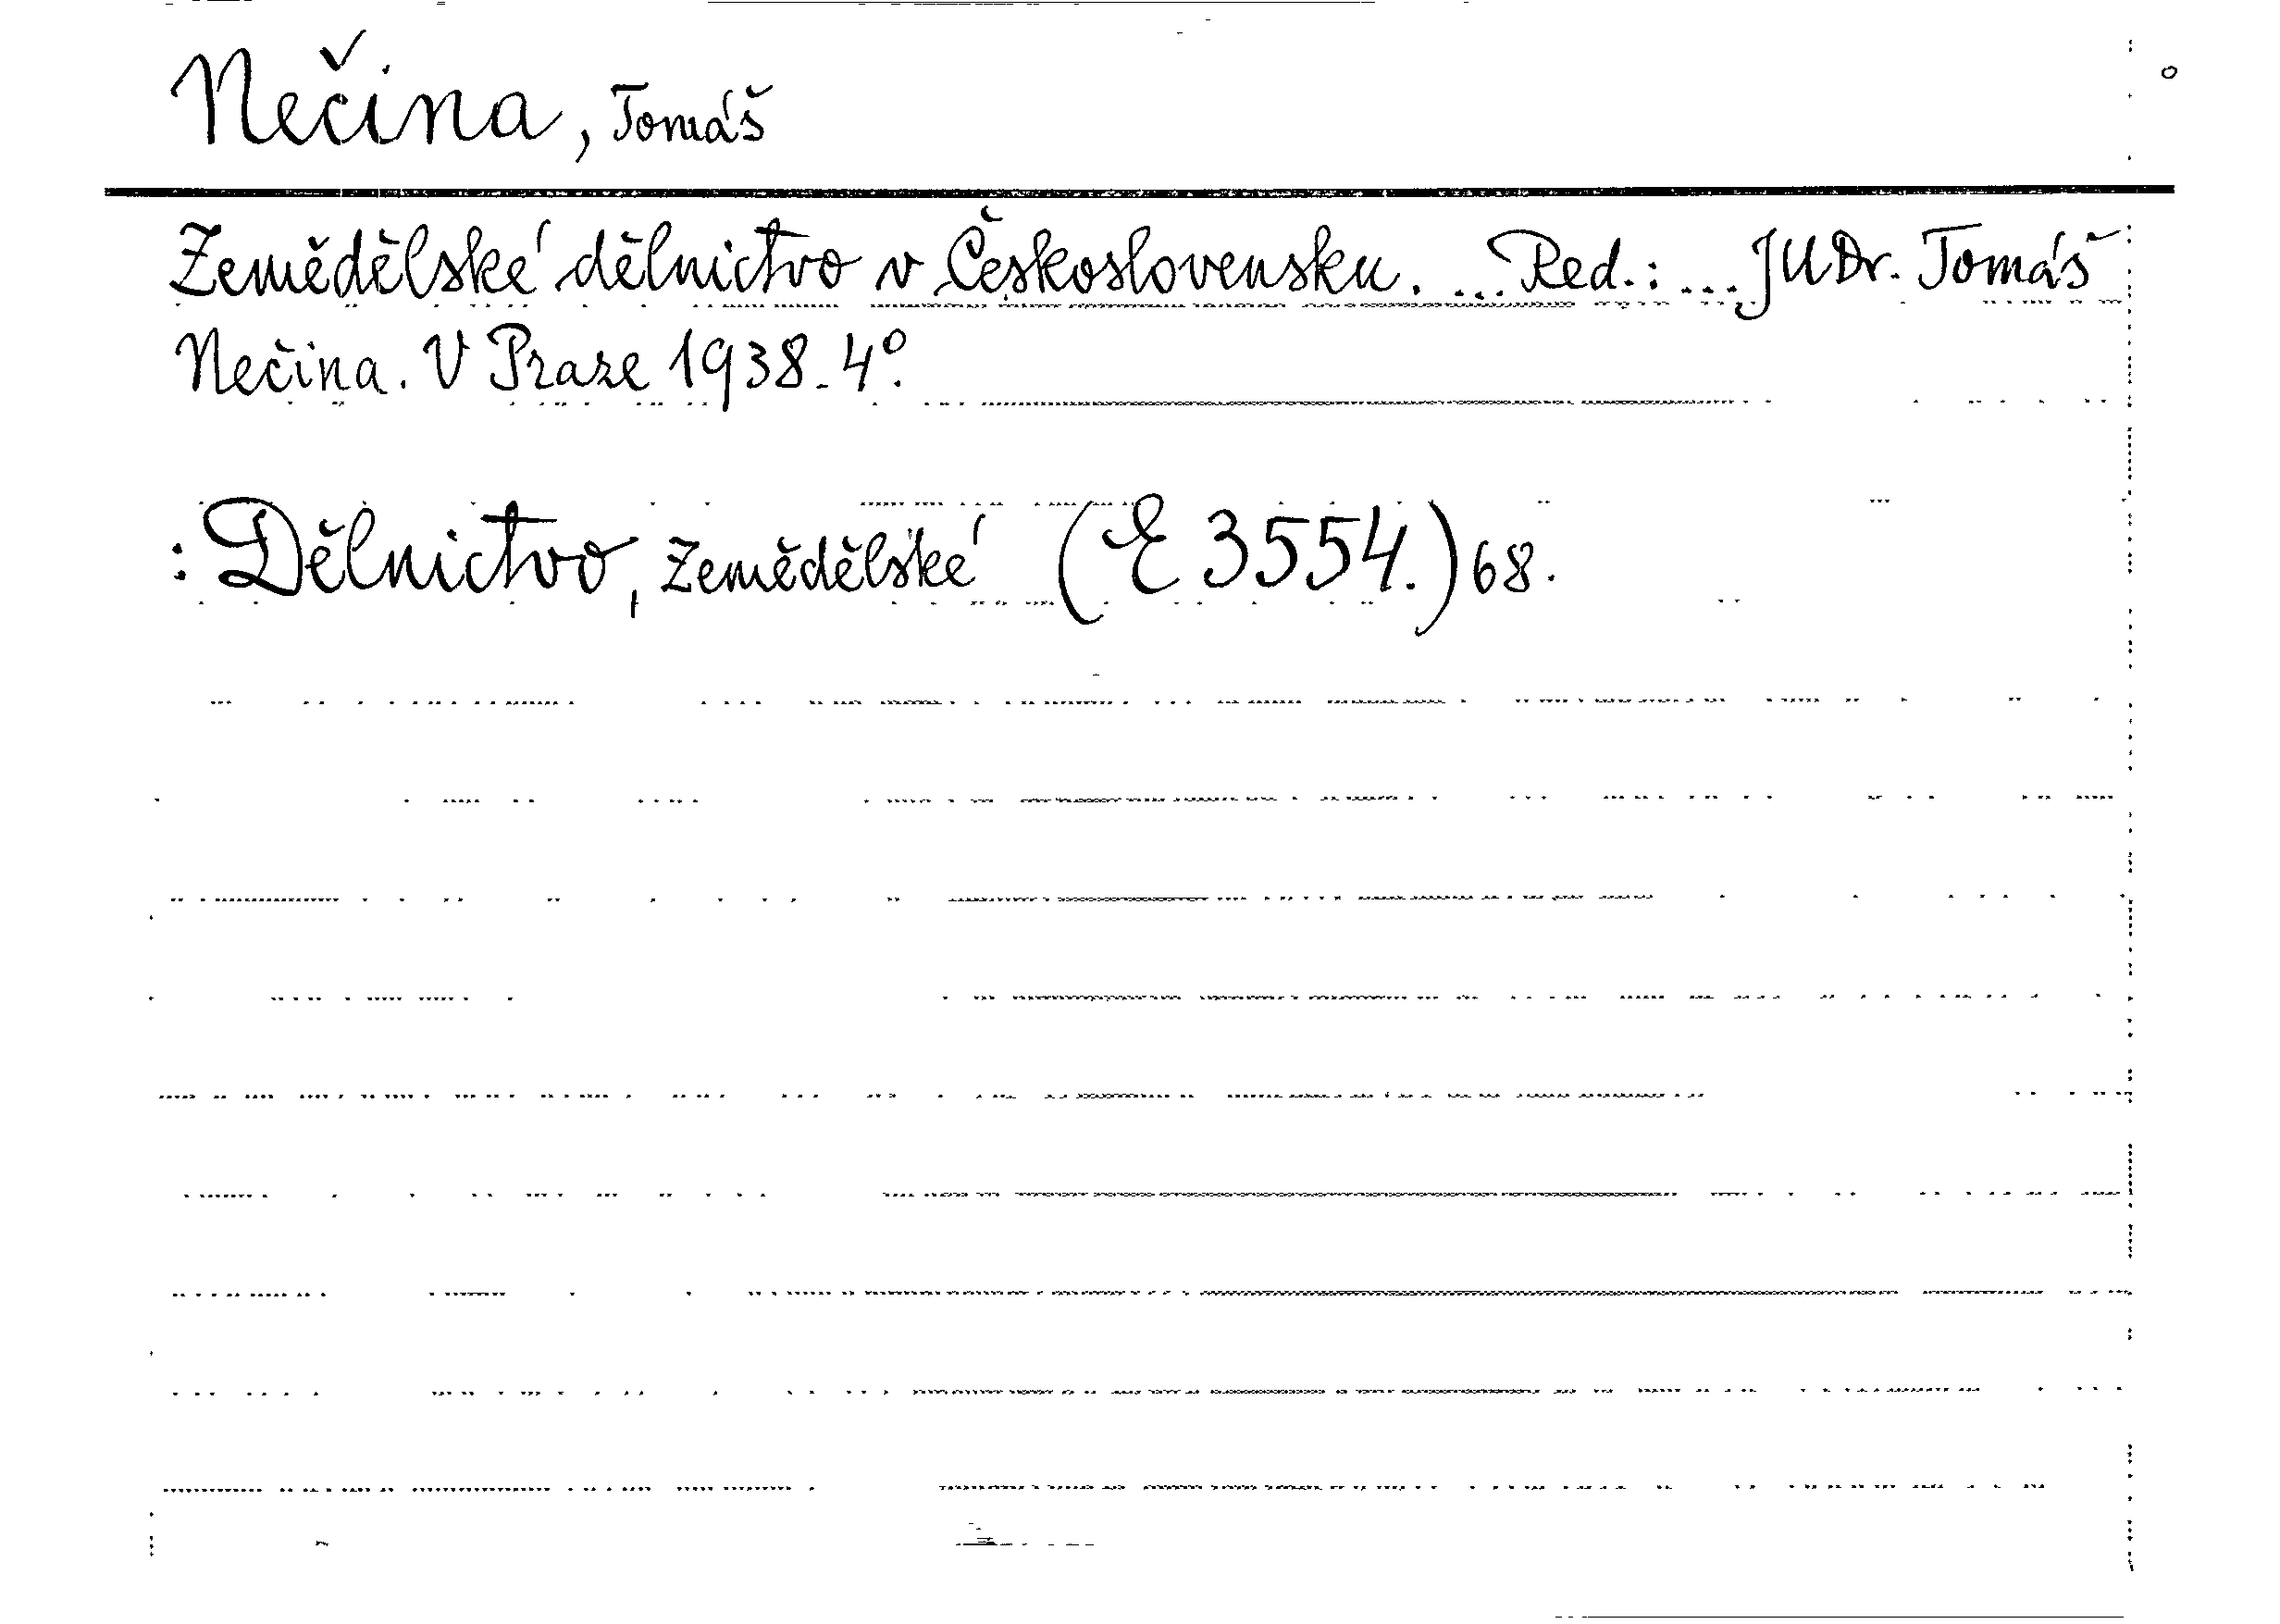 Nečina, Tomáš
Zemědělské dělnictvo v Československu. ... Red.: ... JUDr. Tomáš
Nečina. V Praze 1938. 4º.
: Dělnictvo, zemědělské (E 3554.) 68.